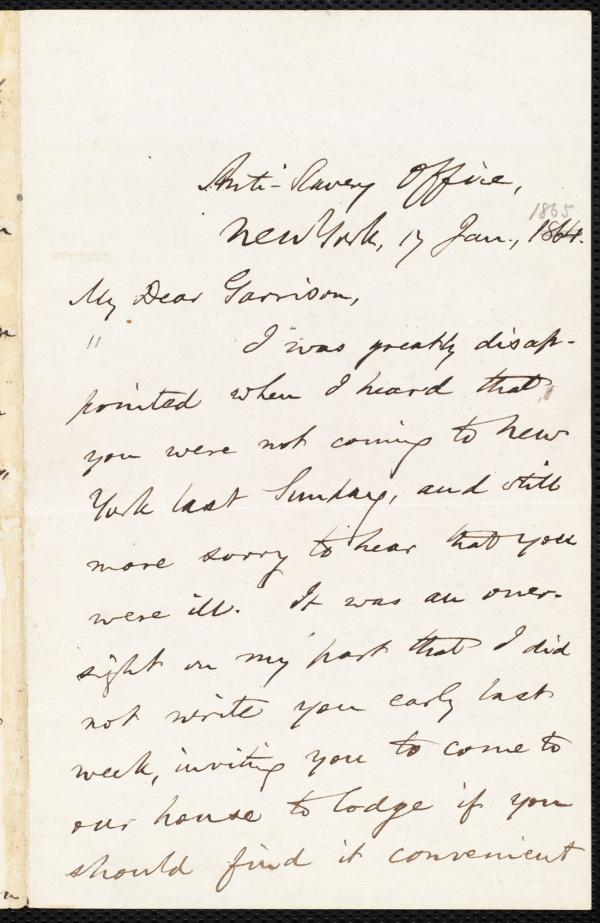 Anti-Slavery Office,
1865
New York, 17 Jan., 1864.
My Dear Garrison,
" I was greatly disap-
pointed when I heard that
you were not coming to New
York last Sunday, and still
more sorry to hear that you
were ill. It was an over-
sight on my part that I did
not write you early last
week, inviting you to come to
our house to lodge if you
should find it convenient